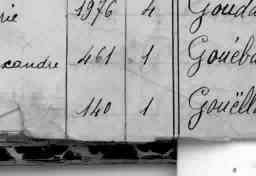 rie 1976 4 Gouda
xandre 461 1 Gouéba
140 1 Gouëll